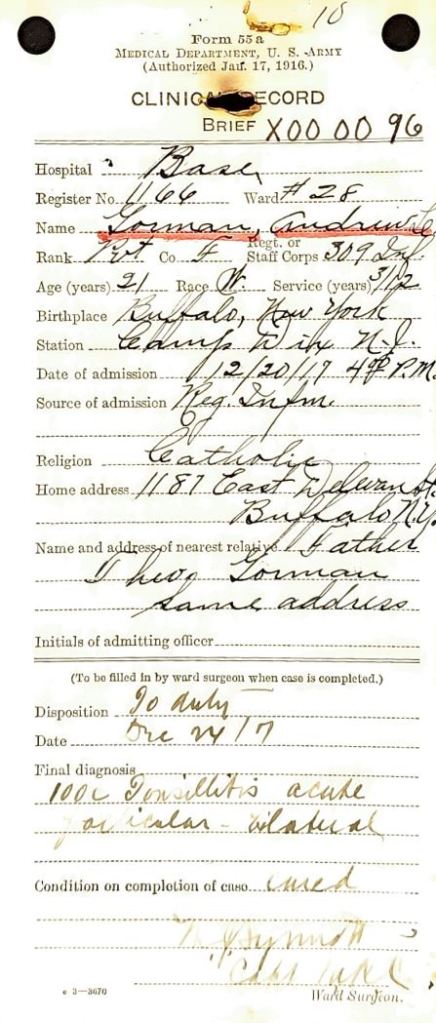 10
Form 55a
MEDICAL DEPARTMENT, U. S. ARMY
(Authorized Jan. 17, 1916.)
CLINICAL RECORD
BRIEF X00 00 96
Hospital Base
Register No. 1166 Ward #28
Name Gorman, Andrew C
Rank Pvt Co F Regt. or Staff Corps 309 Inf.
Age (years) 21 Race W. Service (years) 3/12
Birthplace Buffalo, New York
Station Camp Dix N.J.
Date of admission 12/20/17 4 P.M.
Source of admission Reg. Infm.
Religion Catholic
Home address 1187 East Delevan St.
Buffalo N.Y.
Name and address of nearest relative Father
Theo Gorman
same address
Initials of admitting officer
(To be filled in by ward surgeon when case is completed.)
Disposition To duty
Date Dec 24 17
Final diagnosis
Tonsillitis acute
follicular - bilateral
Condition on completion of case cured
Capt
Ward Surgeon.
e 3—3670